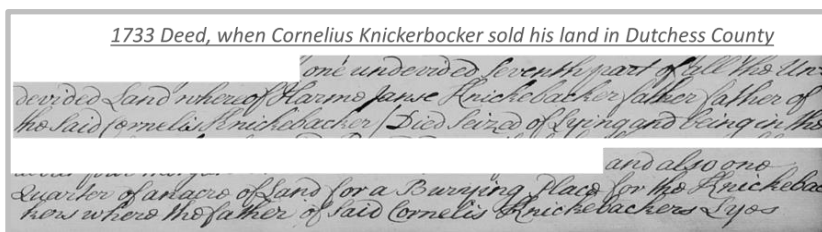 1733 Deed, when Cornelius Knickerbocker sold his land in Dutchess County
one undevided Seventh part of all the Un=
devided Land whereof Harme Janse Knickebacker father father of
the Said Cornelis Knickebacker (Died Seized of Lying and being in the
and also one
Quarter of an acre of Land for a Burying Place for the Knickebac
kers where the father of said Cornelis Knickebackers Lyes